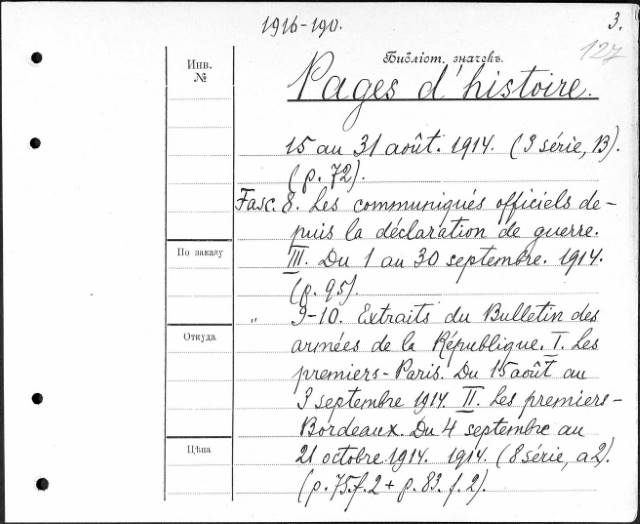 1916-190.
3.
127
Библіот. значекъ.
Инв.
№
Pages d'histoire.
15 au 31 août. 1914. (3 série, 13).
(p. 72).
Fasc. 8. Les communiqués officiels de-
puis la déclaration de guerre.
По заказу
III. Du 1 au 30 septembre. 1914.
(p. 95).
" 9-10. Extraits du Bulletin des
Откуда
armées de la République. I. Les
premiers-Paris. Du 15 août au
3 septembre 1914. II. Les premiers-
Bordeaux. Du 4 septembre au
Цѣна
21 octobre 1914. 1914. (8 série, a2).
(p. 75.f.2 + p. 83. f. 2).